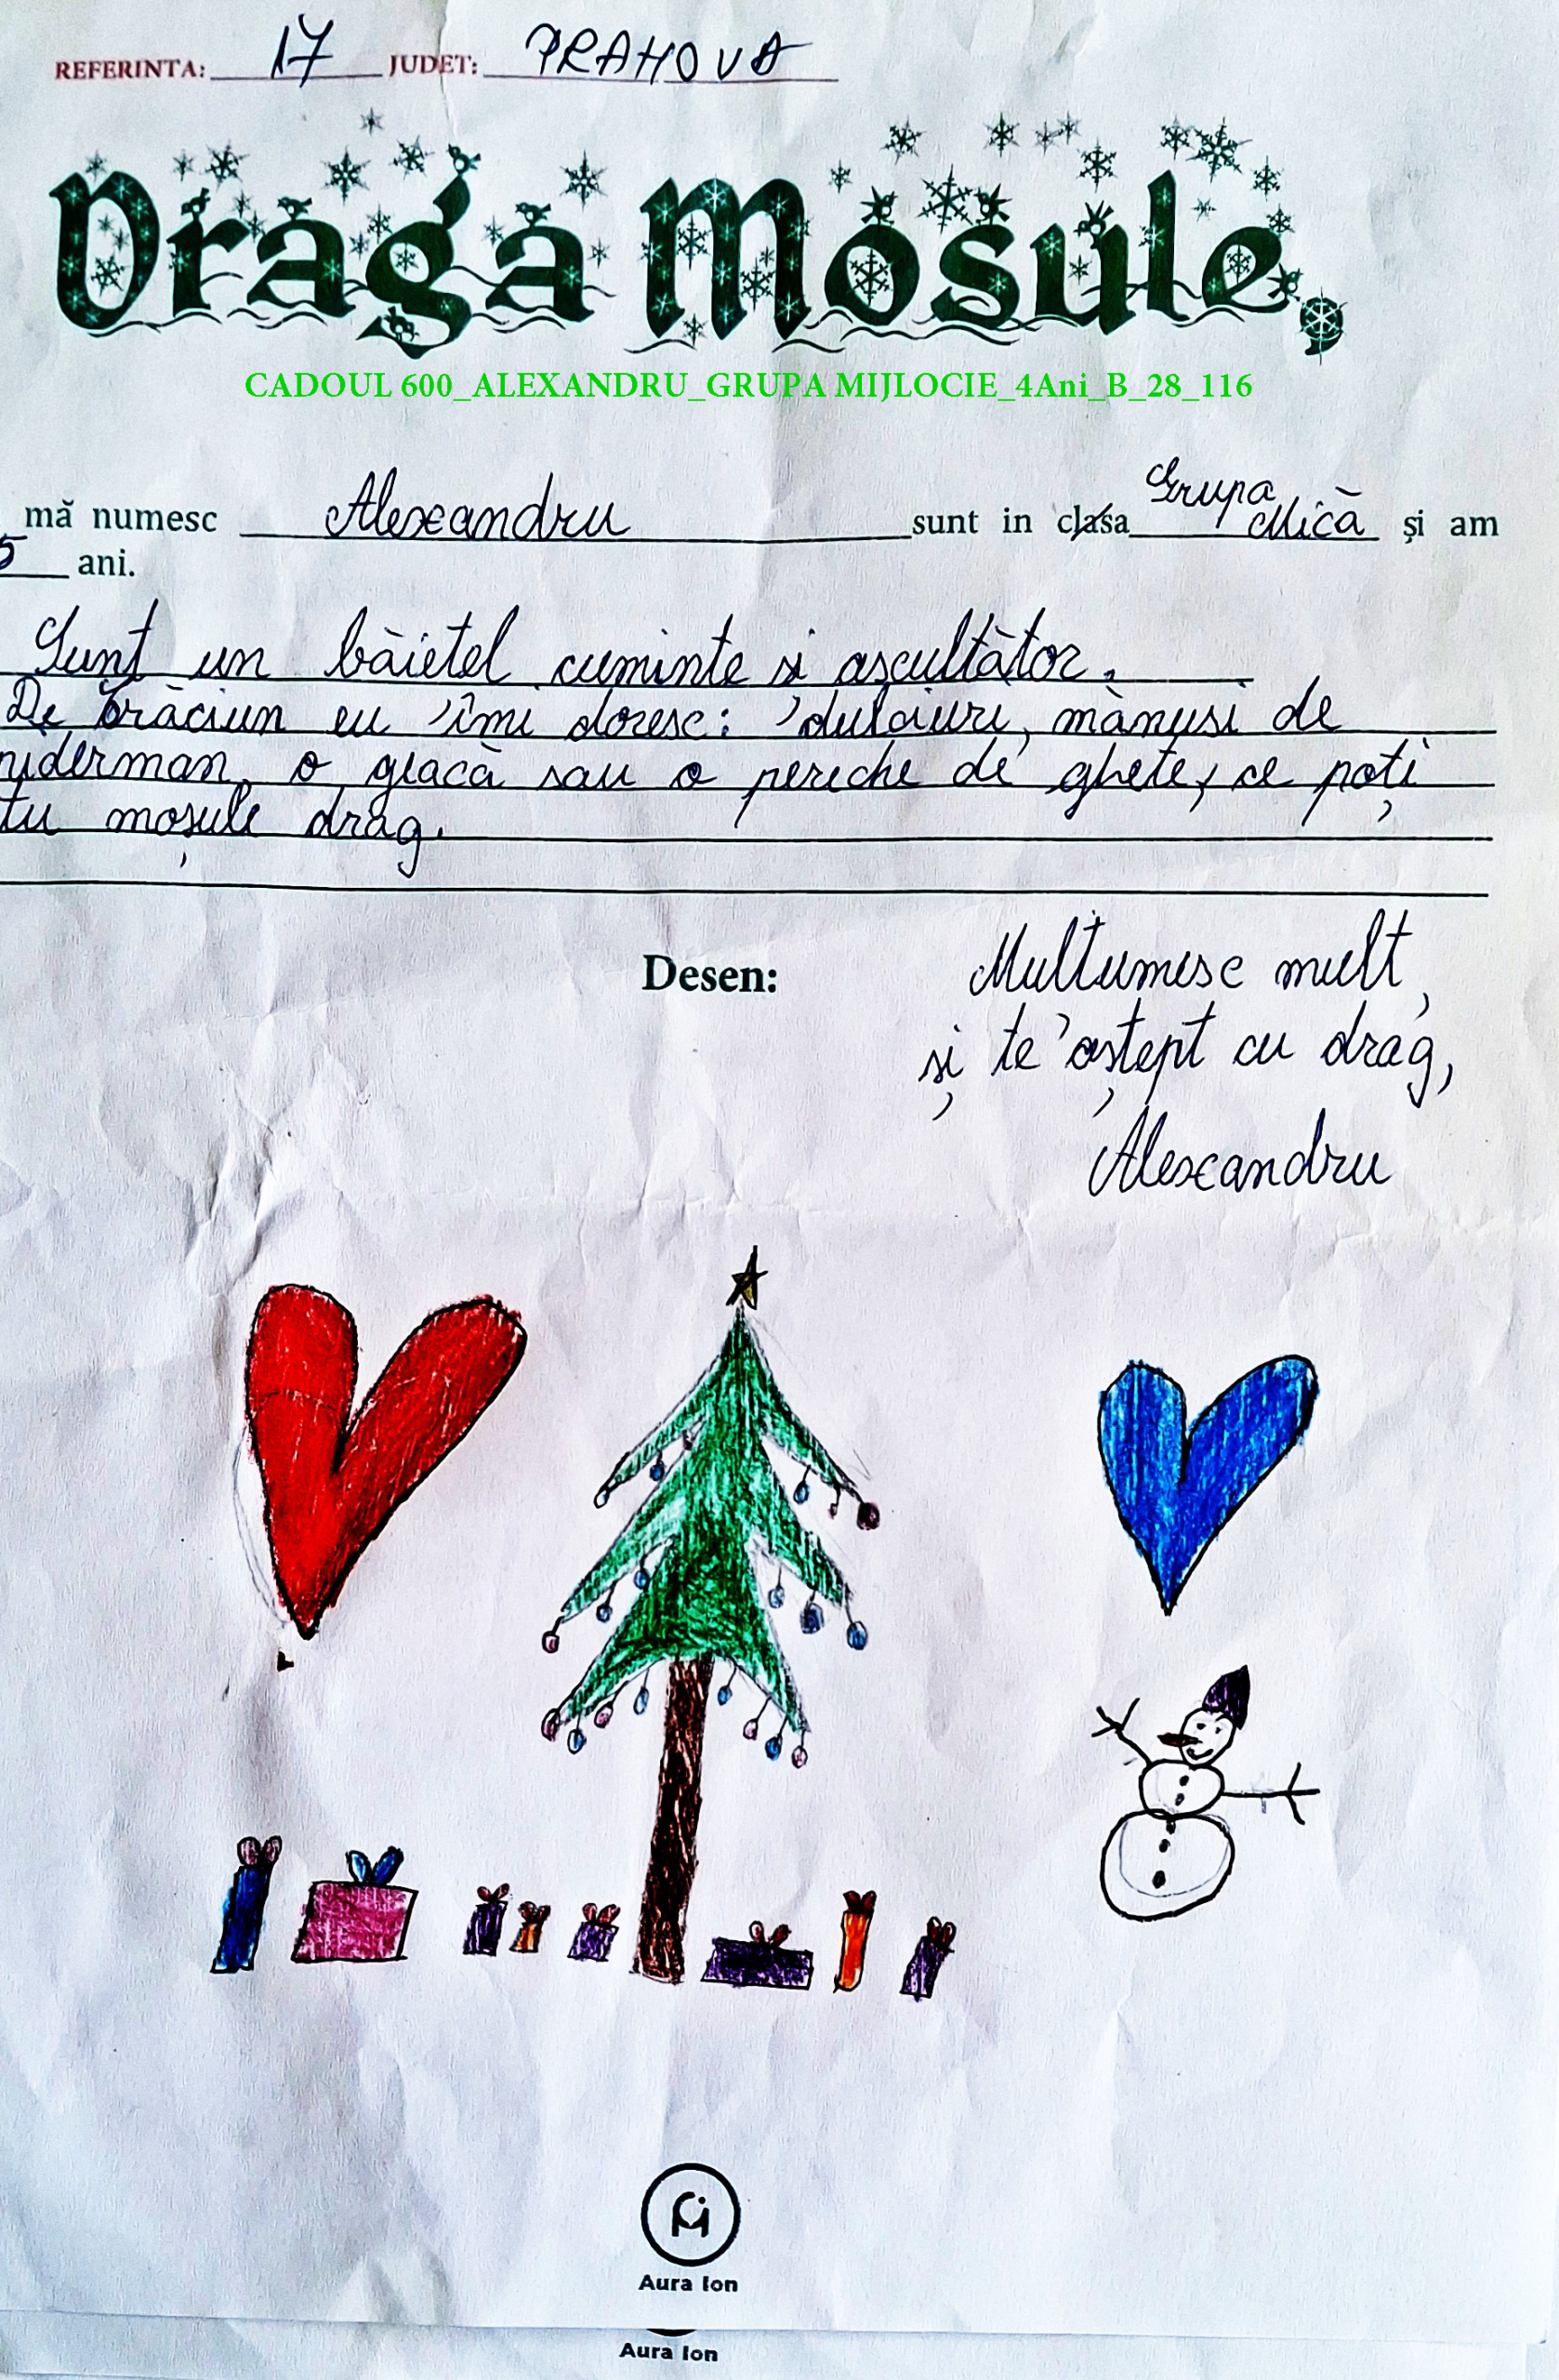 REFERINTA: 17 JUDET: PRAHOVA
Draga Mosule,
CADOUL 600_ALEXANDRU_GRUPA MIJLOCIE_4Ani_B_28_116
mă numesc Alexandru sunt in clasa Grupa Mică și am
5 ani.
Sunt un băiețel cuminte si ascultător.
De Crăciun eu îmi doresc: dulciuri, mănuși de
piderman, o geacă sau o pereche de ghete, ce poți
tu moșule drag.
Desen:
Mulțumesc mult
și te aștept cu drag,
Alexandru
Aura Ion
Aura Ion